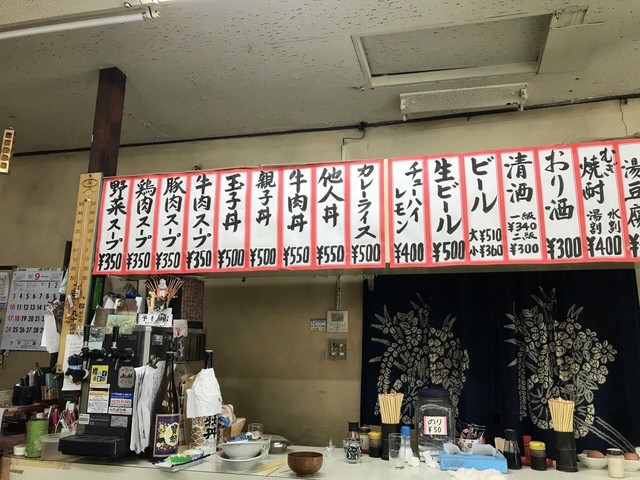 野菜スープ ¥350
鶏肉スープ ¥350
豚肉スープ ¥350
牛肉スープ ¥350
玉子丼 ¥500
親子丼 ¥500
牛肉丼 ¥550
他人丼 ¥550
カレーライス ¥500
チューハイ レモン ¥400
生ビール ¥480
ビール 大¥510
小¥360
清酒 一級 ¥340
二級 ¥300
おり酒 ¥300
むぎ焼酎 湯割 水割 ¥400
9
のり
¥50